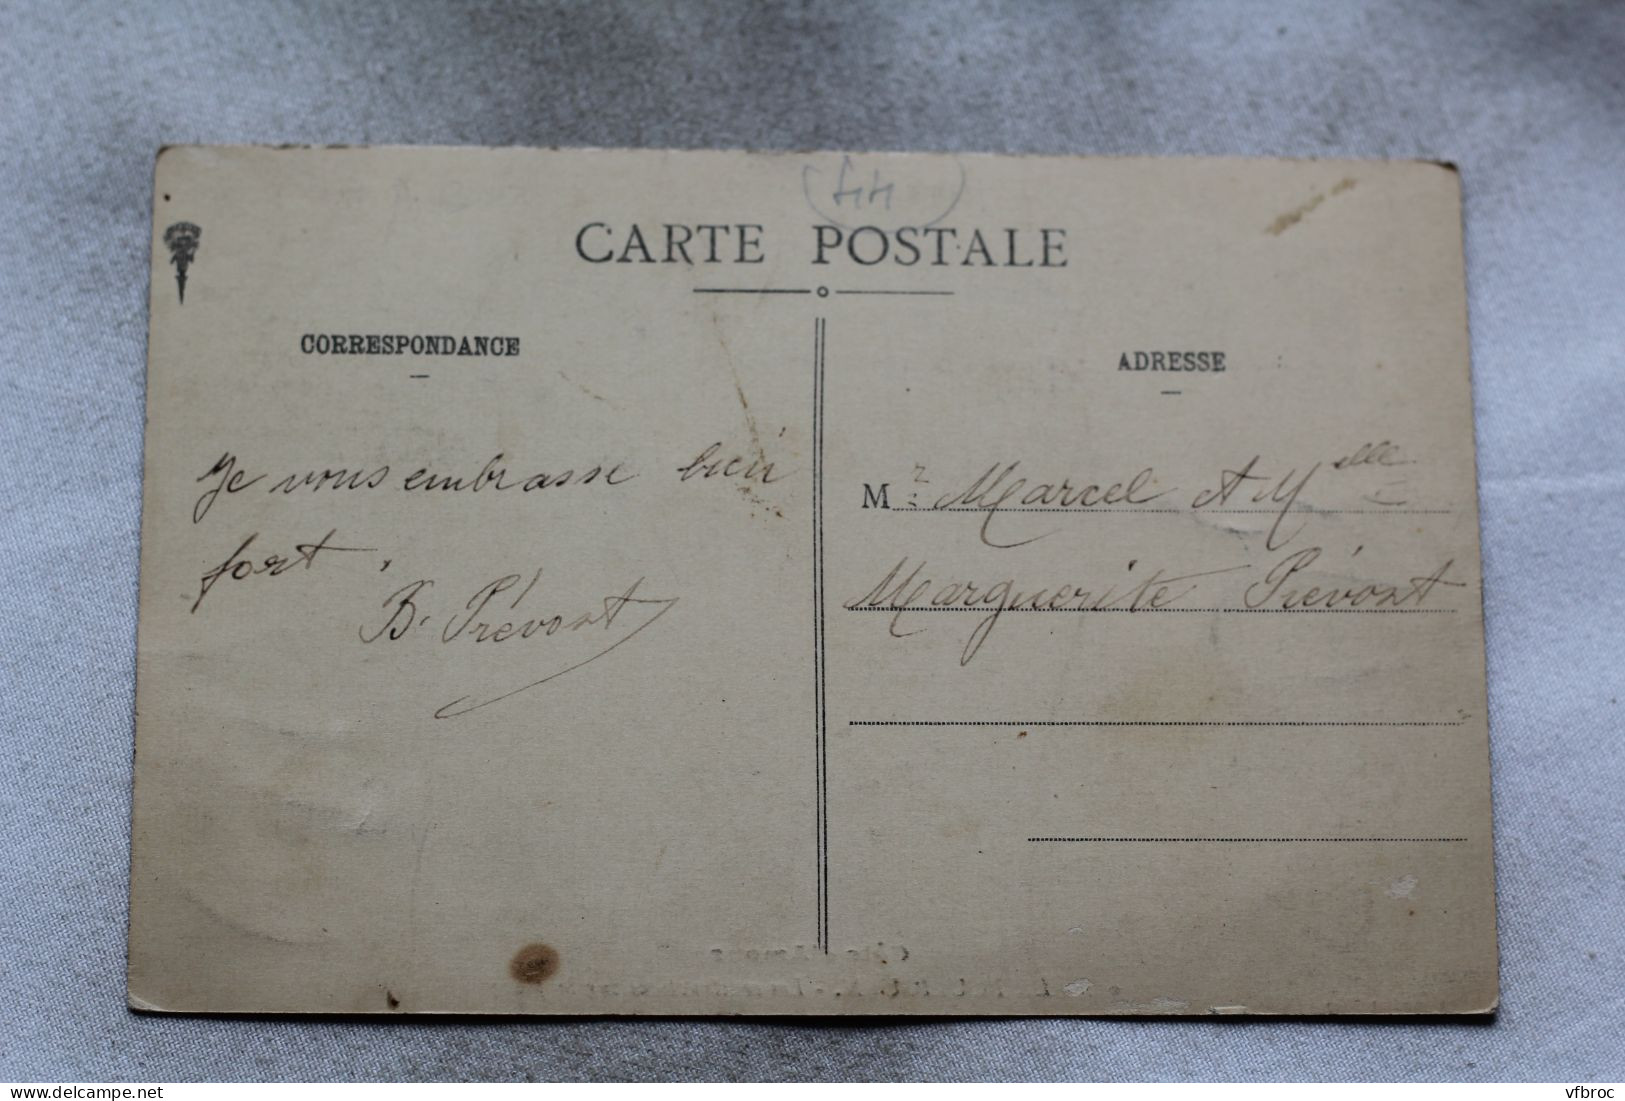 (44)
CARTE POSTALE
CORRESPONDANCE
Je vous embrasse bien
fort.
B. Prévost
ADRESSE
Mr Marcel et Melle
Marguerite Prévost
www.delcampe.net
vfbroc